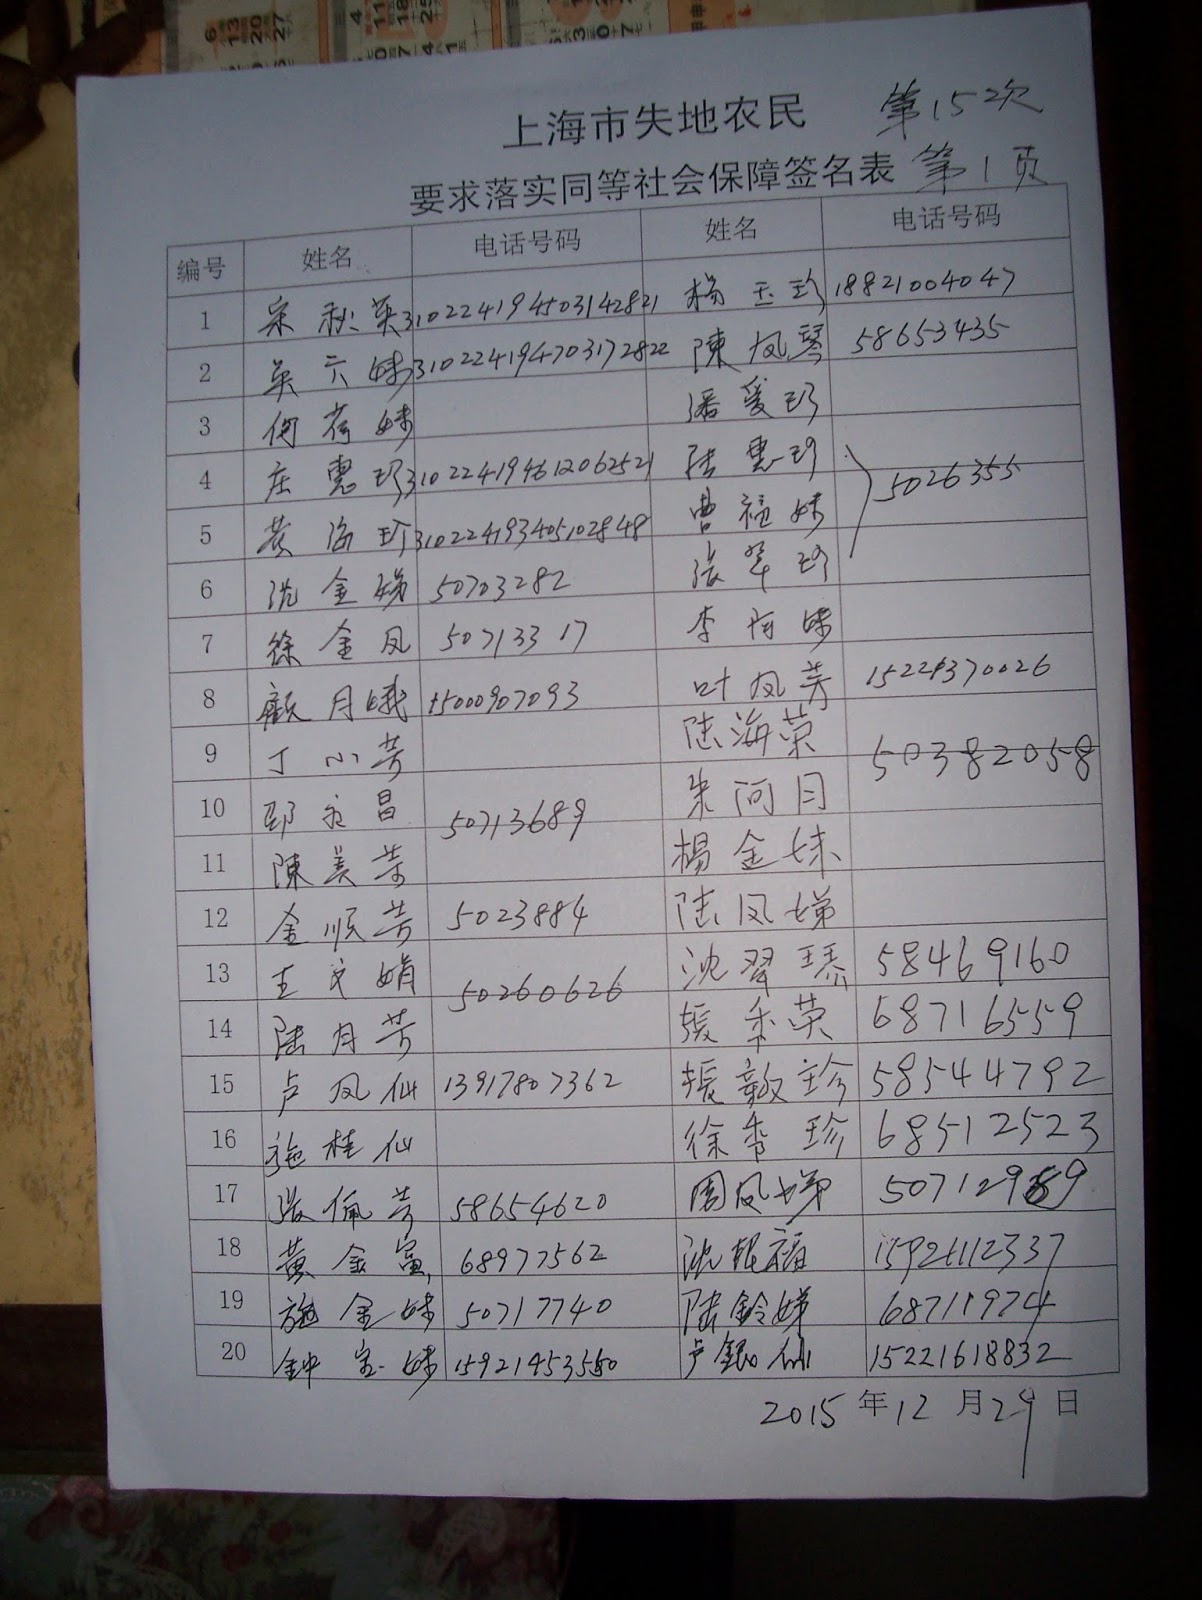 上海市失地农民 第15次
要求落实同等社会保障签名表 第1页
编号 姓名 电话号码 姓名 电话号码
1 宋秋英 310224194503142821 杨玉珍 18821004047
2 吴六妹 310224194703172822 陳凤琴 58653435
3 何荷妹 潘爱珍
4 庄惠珍 310224194612062521 陆惠珍 5026355
5 黄海珍 310224193405102848 曹福妹
6 沈金娣 50703282 张翠珍
7 徐金凤 50713317 李妹
8 顧月娥 15000907093 叶凤芳 15221370026
9 丁小芳 陆海荣 50382058
10 邬永昌 50713689 朱阿月
11 陳美芳 杨金妹
12 金顺芳 5023884 陆凤娣
13 王文娟 50260626 沈翠琴 58469160
14 陆月芳 张秀荣 68716559
15 卢凤仙 13917807362 张敏珍 58544792
16 施桂仙 徐秀珍 68512523
17 张佩芳 58654620 周凤娣 50712989
18 黄金富 68977562 沈福 15921112337
19 施金妹 50717740 陆铃娣 68711974
20 钟宝妹 15921453550 卢銀仙 15221618832
2015年12月29日